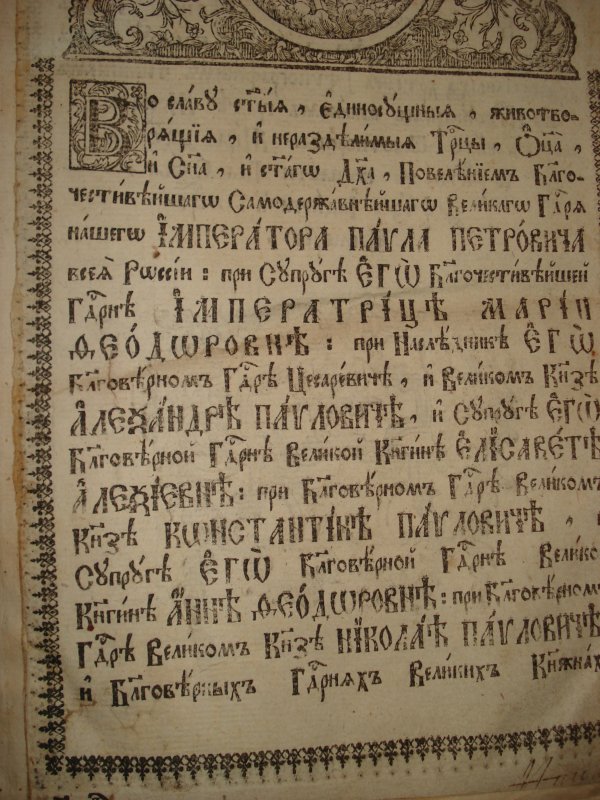 Во славу ст҃ыѧ, є҆диносꙋ́щныѧ, животво-
рѧ́щїѧ, и҆ нераздѣли́мыѧ Трⷪ҇цы, Ѻ҆ц҃а̀,
и҆ Сн҃а, и҆ ст҃а́гѡ Дх҃а, Повелѣ́нїемъ Бл҃го-
чести́вѣйшагѡ Самодержа́внѣйшагѡ Вели́кагѡ Гдⷭ҇рѧ
на́шегѡ І҆МПЕРА́ТОРА ПА́ѴЛА ПЕТРО́ВИЧА
всеѧ̀ Рѡссі́и: при Сꙋпрꙋ́гѣ Є҆ГѠ̀ Бл҃гочести́вѣйшей
Гдⷭ҇рнѣ І҆МПЕРАТРІ́ЦѢ МАРІ́И
Ѳ̑ЕО́ДѠРОВНѢ: при Наслѣ́дникѣ Є҆ГѠ̀
Бл҃говѣ́рномъ Гдⷭ҇рѣ Цесаре́вичѣ, и҆ Вели́комъ Кн҃зѣ
А҆ЛЕѮА́НДРѢ ПА́ѴЛОВИЧѢ, и҆ Сꙋпрꙋ́гѣ Є҆ГѠ̀
Бл҃говѣ́рной Гдⷭ҇рнѣ Вели́кой Кн҃ги́нѣ Є҆ЛІСАВЕ́ТѢ
А҆ЛЕѮІ́ЕВНѢ: при Бл҃говѣ́рномъ Гдⷭ҇рѣ Вели́комъ
Кн҃зѣ КѠНСТАНТІ́НѢ ПА́ѴЛОВИЧѢ,
Сꙋпрꙋ́гѣ Є҆ГѠ̀ Бл҃говѣ́рной Гдⷭ҇рнѣ Вели́ко
Кн҃ги́нѣ А҆́ННѢ Ѳ̑ЕО́ДѠРОВНѢ: при Бл҃говѣ́рномъ
Гдⷭ҇рѣ Вели́комъ Кн҃зѣ НІКОЛА́Ѣ ПА́ѴЛОВИЧѢ
и҆ Бл҃говѣ́рныхъ Гдⷭ҇рнѧхъ Вели́кихъ Кнѧжна́хъ